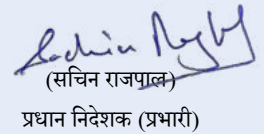 (सचिन राजपाल)
प्रधान निदेशक (प्रभारी)